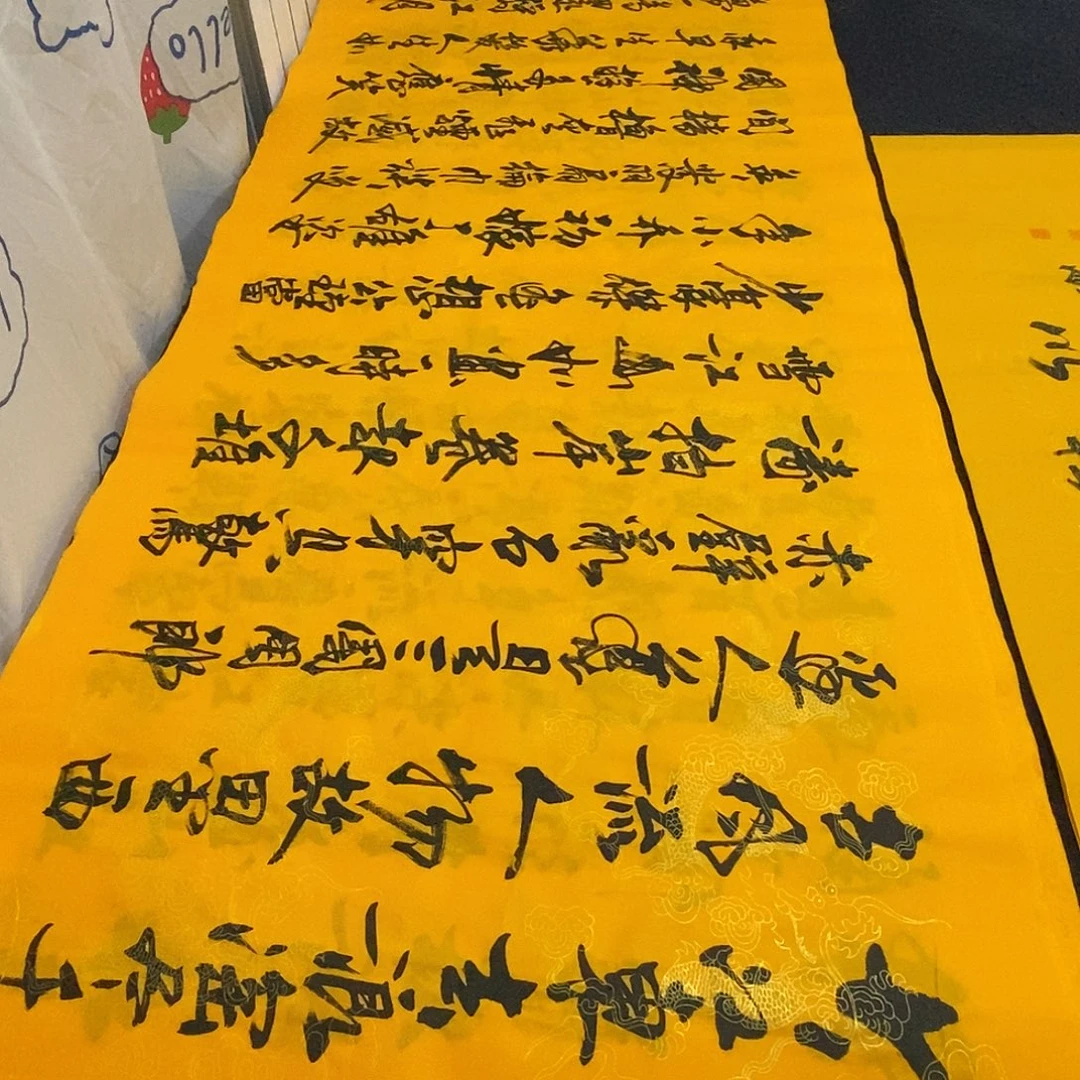 大江東去浪淘盡千
古風流人物故壘西
邊人道是三國周郎
赤壁亂石驚
濤拍岸卷起千堆
雪江山如畫一時多
少豪傑遙想公瑾當
年小喬初嫁了雄姿
英發羽扇綸巾談笑
間檣櫓灰飛煙滅故
國神遊多情應笑
我早生華髮人生如
夢一尊還酹江月